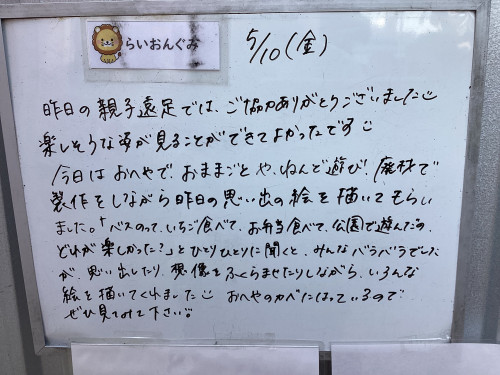 らいおんぐみ
5/10(金)
昨日の親子遠足では、ご協力ありがとうございました
楽しそうな姿が見ることができてよかったです
今日はおへやで、おままごとや、ねんど遊び、廃材で
製作をしながら昨日の思い出の絵を描いてもらい
ました。「バスのって、いちご食べて、お弁当食べて、公園で遊んだの、
どれが楽しかった?」とひとりひとりに聞くと、みんなバラバラでした
が、思い出したり、想像をふくらませたりしながら、いろんな
絵を描いてくれました おへやのカベにはっているので
ぜひ見てみて下さい。